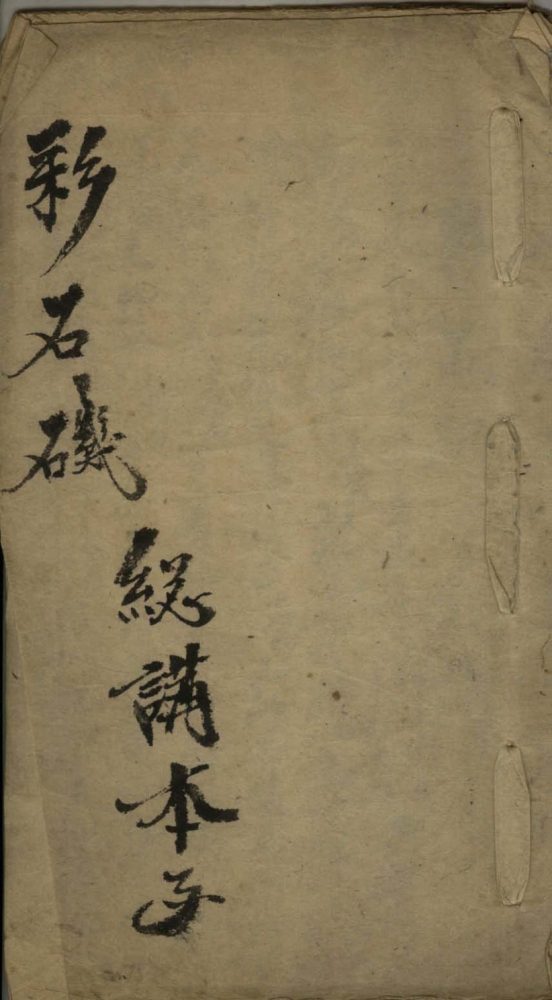 彩石磯
緫講本子